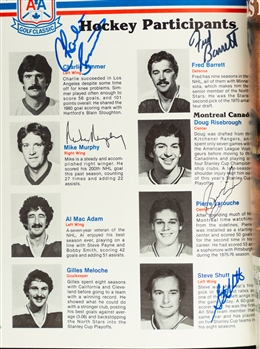 AA
GOLF CLASSIC
Hockey Participants
Charlie Simmer
Left Wing
Charlie succeeded in Los
Angeles despite some
time off for knee problems. Sim-
mer played often enough to
score 56 goals, and 101
points overall. He shared the
1980 goal scoring mark with
Hartford's Blain Stoughton.
Mike Murphy
Right Wing
Mike is a steady and accom-
plished right winger. He
scored his 200th NHL goal
this past season, counting
27 times and adding 22
assists.
Al Mac Adam
Left Wing
A seven-year veteran of the
NHL, Al enjoyed his best
season ever, playing on a
line with Steve Payne and
Bobby Smith, scoring 42
goals and adding 51 assists.
Gilles Meloche
Goalkeeper
Gilles spent eight seasons
with California and Cleve-
land before going to a team
with a winning record. He
showed what he could do
with a stronger club, posting
his best goals against aver-
age (3.06) and backstopping
the North Stars into the
Stanley Cup Playoffs.
Fred Barrett
Defense
Fred has nine seasons in the
NHL, all of them with Min-
nesota. He was a member of
the Memorial Cup Champion
Toronto
make the Stars. He was a
second pick of the 1970 ama-
teur draft.
Montreal Canad
Doug Risebrough
Center
Doug was drafted from the
Kitchener Rangers, and
spent only seven games with
the American League Voya-
geurs before coming to the
Canadiens and playing on
four Stanley Cup Champion-
ship clubs. A
shoulder injury kept him out
of this year's Stanley Cup
Playoffs.
Pierre Larouche
Center
After spending much of his
Montreal time watching
from the sidelines, Pierre
was installed as a starting
center and scored 50 goals
for the second time in his
career. He had scored 53
in
during the 1975-76 season.
Steve Shutt
Left Wing
Steve
Mike Murphy
Fred Barrett